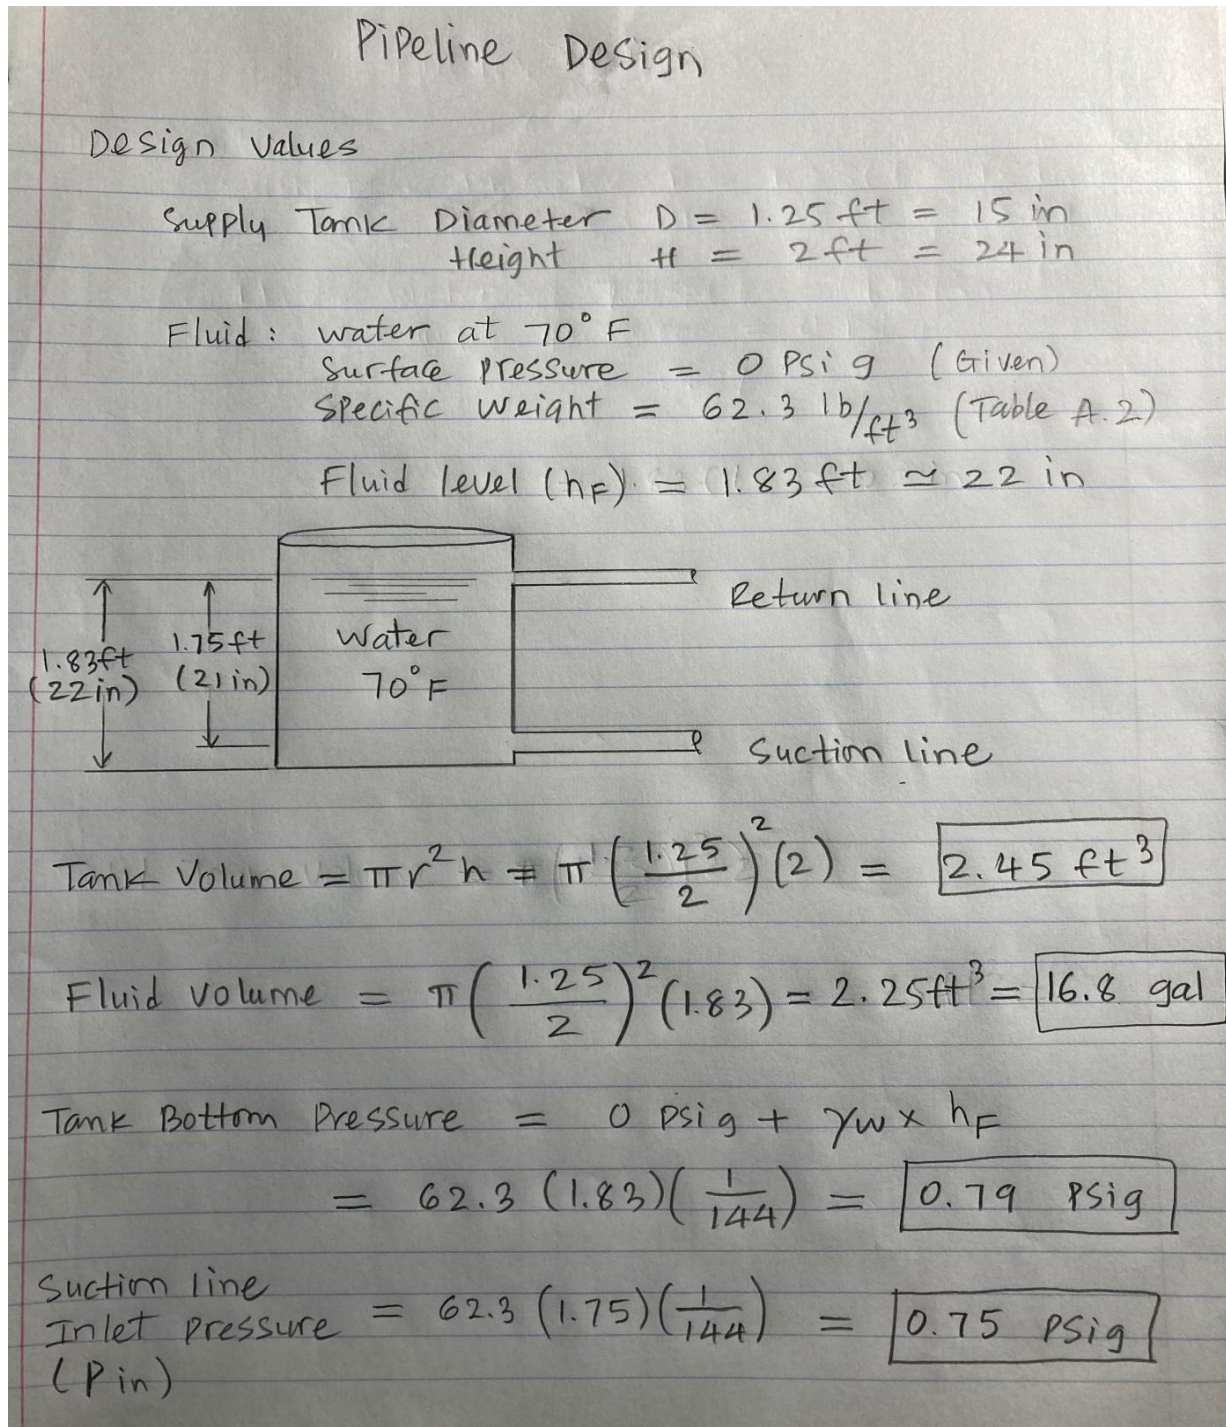 Pipeline Design
Design Values
Supply Tank Diameter D = 1.25 ft = 15 in
Height H = 2 ft = 24 in
Fluid : water at 70° F
Surface pressure = 0 Psi g (Given)
Specific Weight = 62.3 lb/ft³ (Table A.2)
Fluid level (hF) = 1.83 ft ≃ 22 in
Return line
1.83ft
(22in)
1.75ft
(21in)
Water
70°F
Suction line
Tank Volume = πr²h = π(1.25/2)²(2) = 2.45 ft³
Fluid volume = π(1.25/2)²(1.83) = 2.25ft³ = 16.8 gal
Tank Bottom Pressure = 0 Psig + γw x hF
= 62.3 (1.83)(1/144) = 0.79 Psig
Suction line
Inlet pressure = 62.3 (1.75)(1/144) = 0.75 Psig
(Pin)